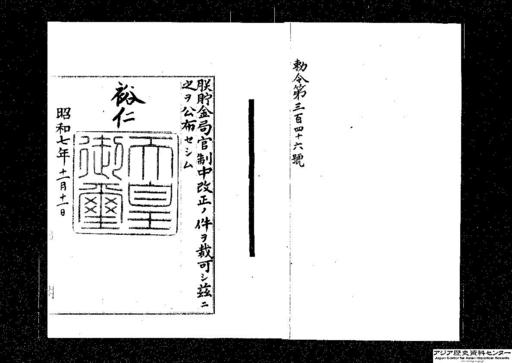 勅令第三百四十六號
朕貯金局官制中改正ノ件ヲ裁可シ茲ニ
之ヲ公布セシム
裕仁
天皇
御璽
昭和七年十一月十一日
アジア歴史資料センター
Japan Center for Asian Historical Records